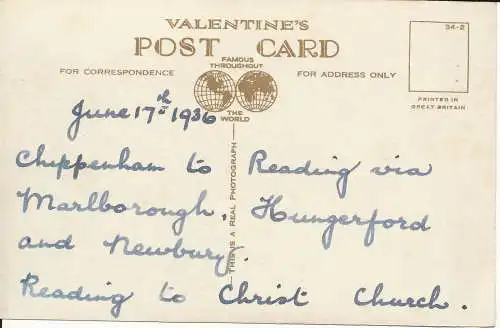 VALENTINE'S
POST CARD
FAMOUS
THROUGHOUT
FOR CORRESPONDENCE
FOR ADDRESS ONLY
THE
WORLD
34-2
PRINTED IN
GREAT BRITAIN
THIS IS A REAL PHOTOGRAPH
June 17th 1936
Chippenham to Reading via
Marlborough, Hungerford
and Newbury.
Reading to Christ Church.